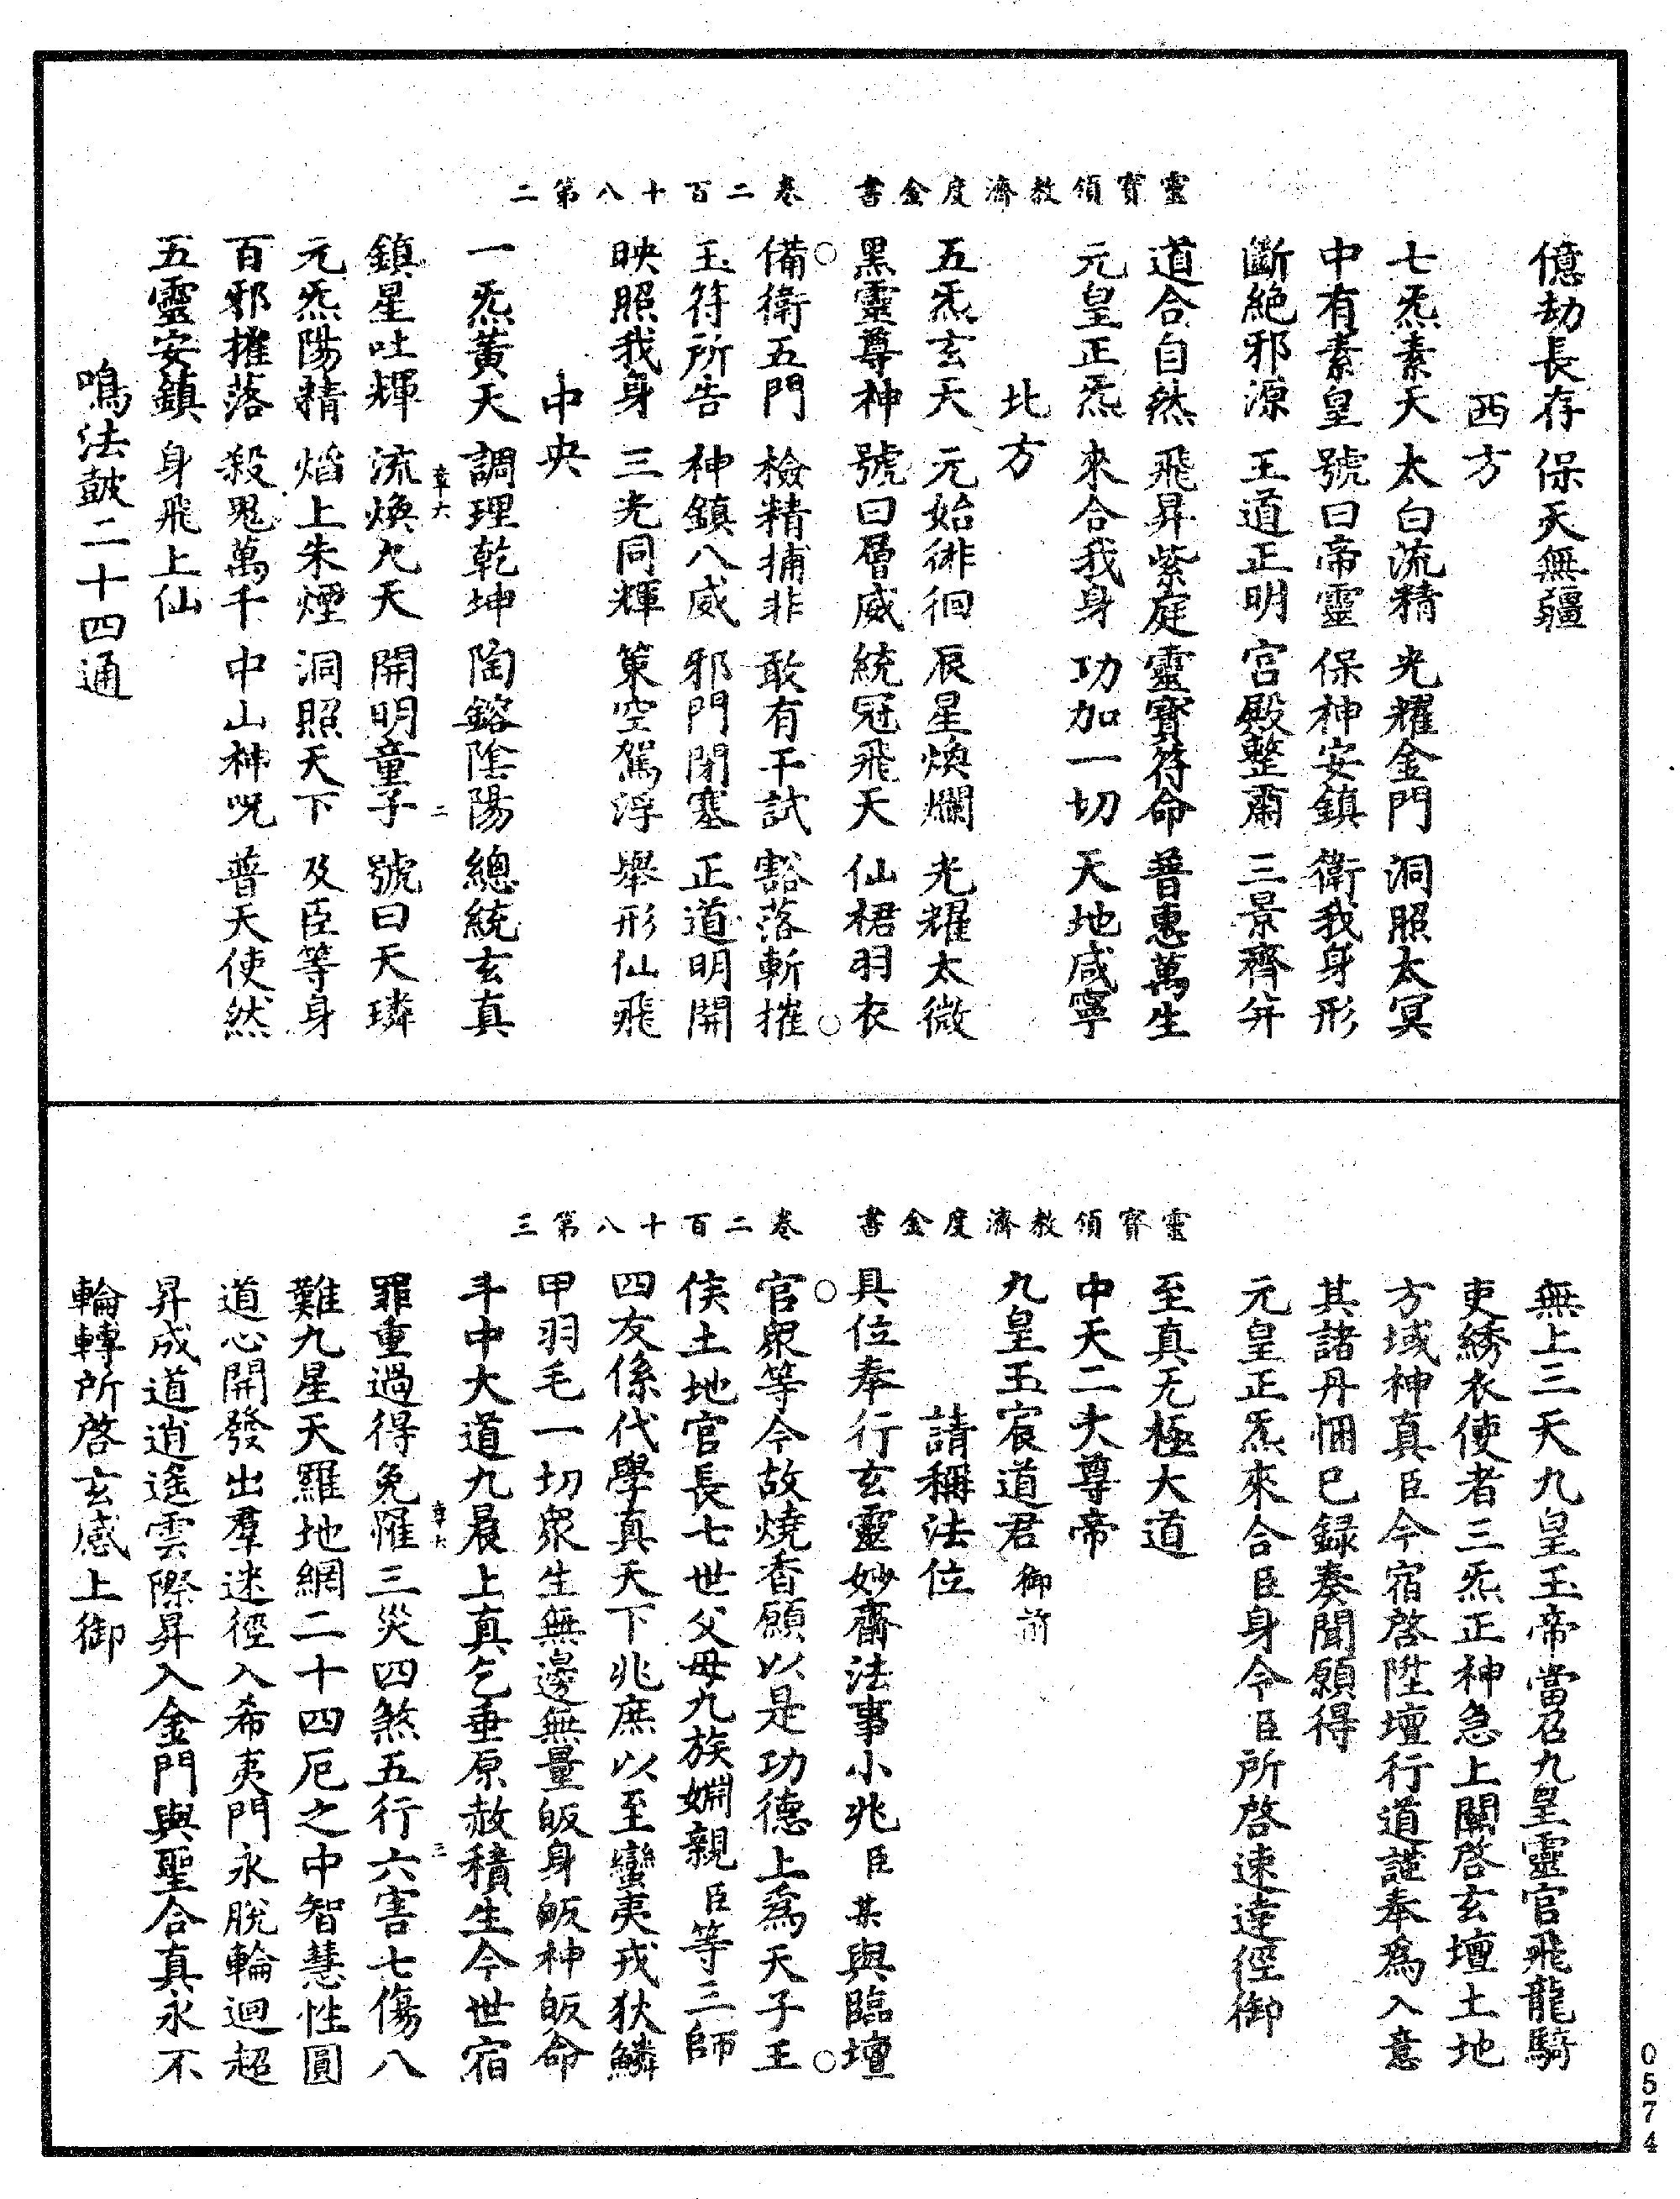 靈寶領教濟度金書　卷二百十八第二
億劫長存　保天無疆
西方
七炁素天　太白流精　光耀金門　洞照太冥
中有素皇　號曰帝靈　保神安鎮　衛我身形
斷絕邪源　王道正明　宮殿整肅　三景齊并
道合自然　飛昇紫庭　靈寶符命　普惠萬生
元皇正炁　來合我身　功加一切　天地咸寧
北方
五炁玄天　元始徘徊　辰星煥爛　光耀太微
黑靈尊神　號曰層威　統冠飛天　仙裙羽衣
備衛五門　檢精捕非　敢有干試　豁落斬摧
玉符所告　神鎮八威　邪門閉塞　正道明開
映照我身　三光同輝　策空駕浮　舉形仙飛
中央
一炁黃天　調理乾坤　陶鎔陰陽　總統玄真
章六　二
鎮星吐輝　流煥九天　開明童子　號曰天璘
元炁陽精　焰上朱煙　洞照天下　及臣等身
百邪摧落　殺鬼萬千　中山神呪　普天使然
五靈安鎮　身飛上仙
鳴法鼓二十四通
靈寶領教濟度金書　卷二百十八第三
無上三天九皇玉帝當召九皇靈官飛龍騎
吏綉衣使者三炁正神急上關啓玄壇土地
方域神真臣今宿啓陞壇行道謹奉爲入意
其諸丹悃已録奏聞願得
元皇正炁來合臣身令臣所啓速達徑御
至真无極大道
中天二大尊帝
九皇玉宸道君御前
請稱法位
具位奉行玄靈妙齋法事小兆臣某與臨壇
官眾等今故燒香願以是功德上爲天子王
侯土地官長七世父母九族婣親臣等三師
四友係代學真天下兆庶以至蠻夷戎狄鱗
甲羽毛一切眾生無邊無量皈身皈神皈命
斗中大道九晨上真乞垂原赦積生今世宿
章六　三
罪重過得免罹三災四煞五行六害七傷八
難九星天羅地網二十四厄之中智慧性圓
道心開發出羣迷徑入希夷門永脫輪迴超
昇成道逍遙雲際昇入金門與聖合真永不
輪轉所啓玄感上御
0574